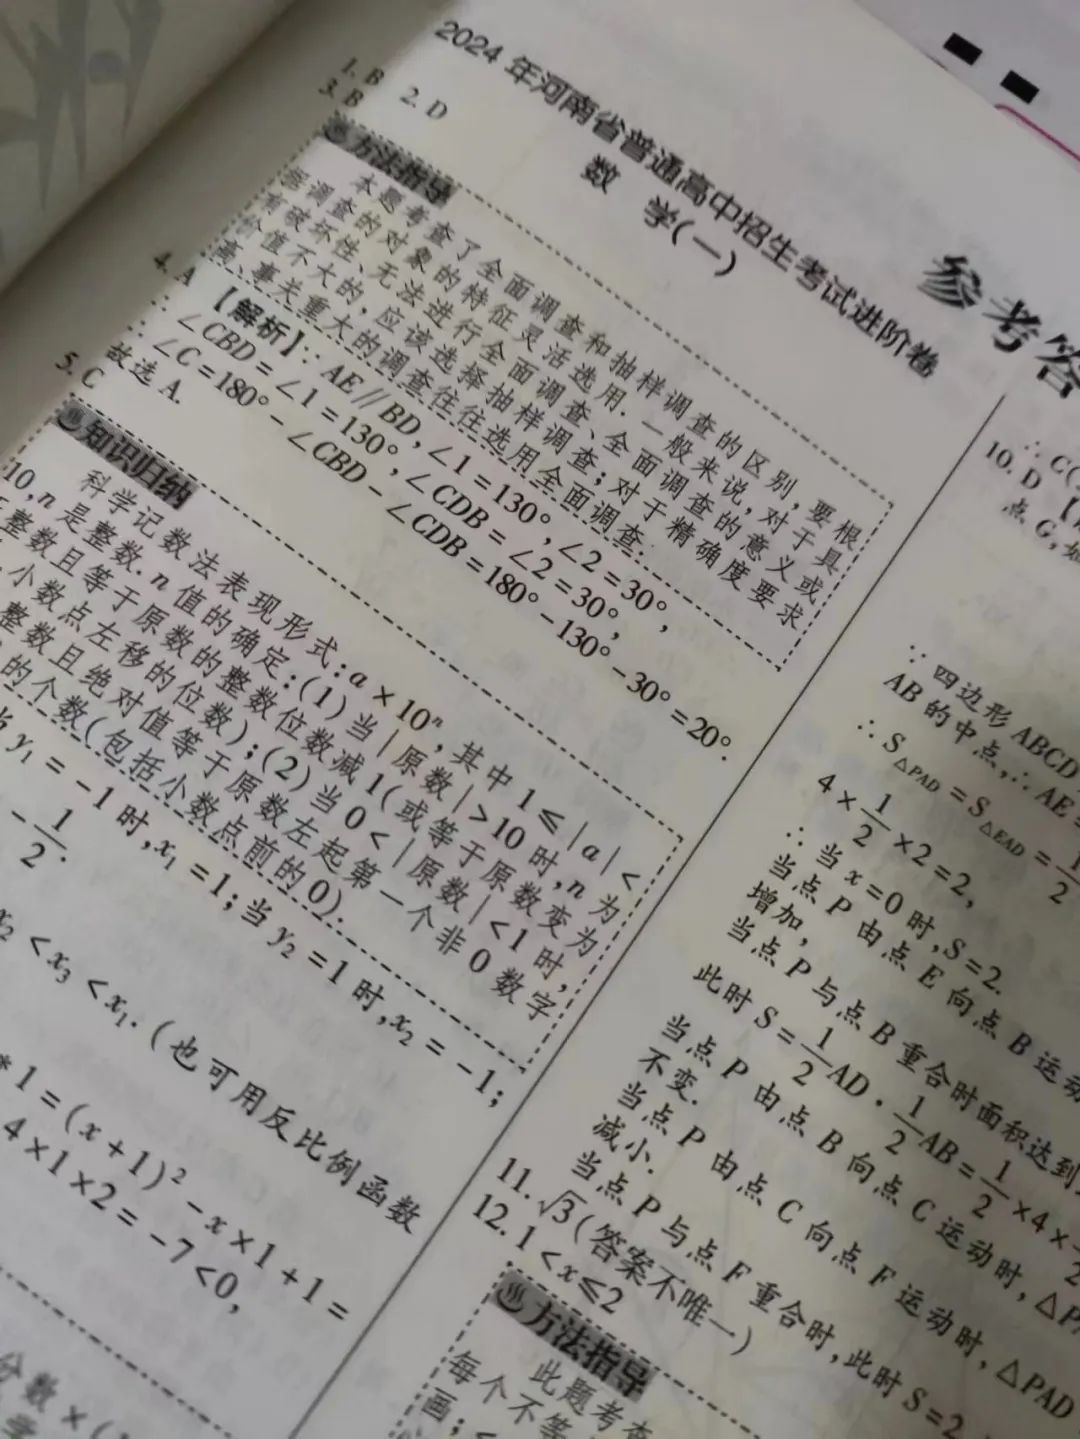 参考答
2024 年河南省普通高中招生考试进阶卷
数 学(一)
1. B 2. D
3. B
方法指导
本题考查了全面调查和抽样调查的区别,要根
据调查的对象的特征灵活选用.一般来说,对于具
有破坏性、无法进行全面调查、全面调查的意义或
价值不大的,应该选择抽样调查;对于精确度要求
高、事关重大的调查往往选用全面调查.
4. A 【解析】∵AE∥BD,∠1=130°,∠2=30°,
∴∠CBD=∠1=130°,∠CDB=∠2=30°,
∴∠C=180°-∠CBD-∠CDB=180°-130°-30°=20°.
故选 A.
5. C
知识归纳
科学记数法表现形式:a×10ⁿ,其中 1≤|a|<
10,n 是整数.n 值的确定:(1)当|原数|>10 时,n 为
整数且等于原数的整数位数减 1(或等于原数变为
小数点左移的位数);(2)当 0<|原数|<1 时,
整数且绝对值等于原数左起第一个非 0 数字
的个数(包括小数点前的 0).
当 y₁=-1 时,x₁=1;当 y₂=1 时,x₂=-1;
-1/2.
x₂<x₃<x₁.(也可用反比例函数
*1=(x+1)²-x×1+1=
4×1×2=-7<0,
分数×(
∴C(
10. D
点 G,如
∵四边形 ABCD
AB 的中点,∴AE=
∴S△PAD=S△EAD=1/2
4×1/2×2=2,
∴当 x=0 时,S=2.
当点 P 由点 E 向点 B 运动
增加,
当点 P 与点 B 重合时面积达到
此时 S=1/2AD·1/2AB=1/2×4×
当点 P 由点 B 向点 C 运动时,△PA
不变.
当点 P 由点 C 向点 F 运动时,△PAD
减小.
当点 P 与点 F 重合时,此时 S=2
11. √3(答案不唯一)
12. 1<x≤2
方法指导
此题考查
每个不等
画;<